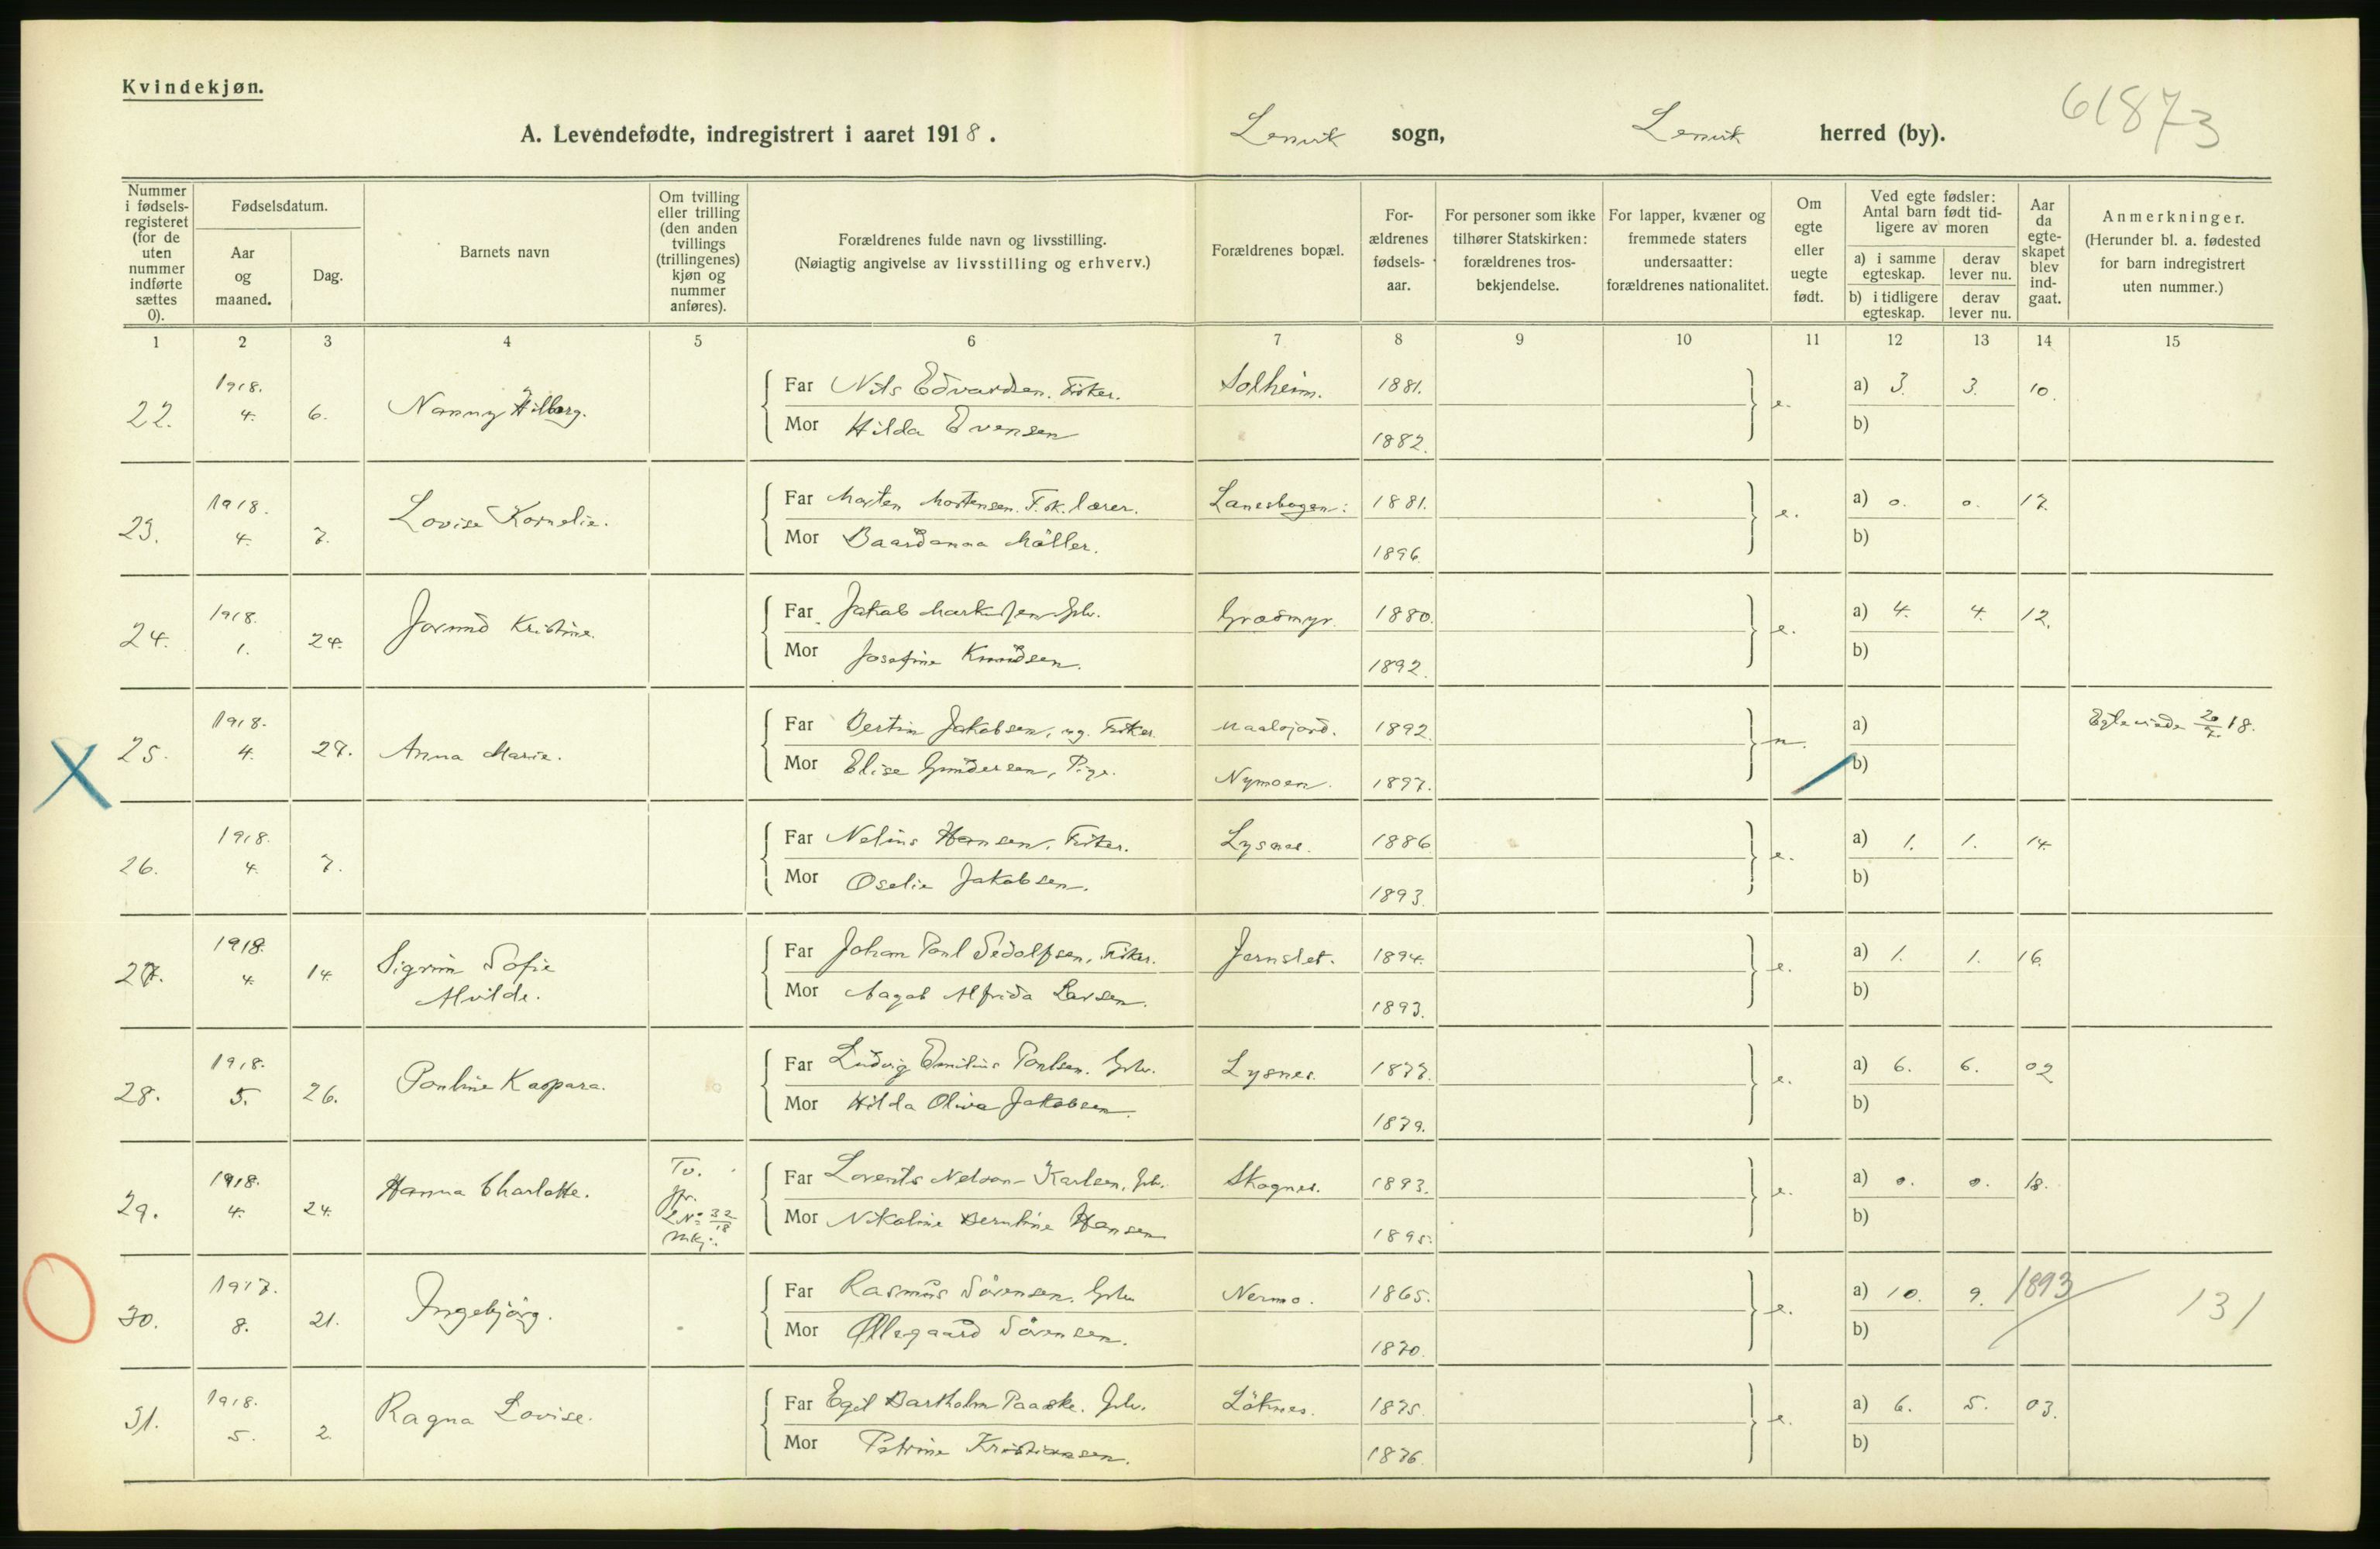 Kvindekjøn.
61873
A. Levendefødte, indregistrert i aaret 1918. Lenvik sogn, Lenvik herred (by).
Nummer i fødsels-registeret (for de uten nummer indførte sættes 0).
Fødselsdatum.
Aar og maaned.
Dag.
Barnets navn
Om tvilling eller trilling (den anden tvillings (trillingenes) kjøn og nummer anføres).
Forældrenes fulde navn og livsstilling.
(Nøiagtig angivelse av livsstilling og erhverv.)
Forældrenes bopæl.
For-ældrenes fødsels-aar.
For personer som ikke tilhører Statskirken: forældrenes tros-bekjendelse.
For lapper, kvæner og fremmede staters undersaatter: forældrenes nationalitet.
Om egte eller uegte født.
Ved egte fødsler: Antal barn født tid-ligere av moren
a) i samme egteskap.
derav lever nu.
b) i tidligere egteskap.
derav lever nu.
Aar da egte-skapet blev ind-gaat.
Anmerkninger.
(Herunder bl. a. fødested for barn indregistrert uten nummer.)
1 2 3 4 5 6 7 8 9 10 11 12 13 14 15
22. 1918. 4. 6. Nanny Hilborg. Far Nils Edvardsen. Fisker. Solheim. 1881. e. a) 3. 3. 10.
Mor Hilda Evensen 1882. b)
23. 1918. 4. 7. Lovise Kornelie. Far Morten Mortensen. F.sk.lærer. Lanesbogen: 1881. e. a) 0. 0. 17.
Mor Baardanna Möller. 1896. b)
24. 1918. 1. 24. Jorund Kristine. Far Jakob Markussen Gbr. Grasmyr. 1880. e. a) 4. 4. 12.
Mor Josefine Knudsen. 1892. b)
25. 1918. 4. 27. Anna Marie. Far Bertin Jakobsen, ug. Fisker. Maalsjord. 1892. u. a) Egteviede 20/7 18.
Mor Elise Gundersen, Pige. Nymoen. 1897. b)
26. 1918. 4. 7. Far Nelius Hansen. Fisker. Lysnes. 1886 e. a) 1. 1. 14.
Mor Oselie Jakobsen. 1893. b)
27. 1918. 4. 14. Sigrun Sofie Alvilde. Far Johan Paul Sedolfsen, Fisker. Jernslet. 1894. e. a) 1. 1. 16.
Mor Aagot Alfrida Larsen. 1893. b)
28. 1918. 5. 26. Pauline Kaspara. Far Ludvig Emilius Paulsen. Gbr. Lysnes. 1877. e. a) 6. 6. 02
Mor Hilda Oliva Jakobsen. 1879. b)
29. 1918. 4. 24. Hanna Charlotte. Tv. jfr. L No 32/18 mkj. Far Lorents Nelson-Karlsen. Gbr. Skognes. 1893. e. a) 0. 0. 18.
Mor Nikoline Berntine Hansen 1895. b)
30. 1917. 8. 21. Ingebjörg. Far Rasmus Sörensen. Gbr. Nermo. 1865. e. a) 10. 9. 1893 131
Mor Ollegaard Sörensen. 1870. b)
31. 1918. 5. 2. Ragna Lovise. Far Egil Bartholm Paaske. Gbr. Löknes. 1875. e. a) 6. 5. 03.
Mor Petrine Kristiansen. 1876. b)